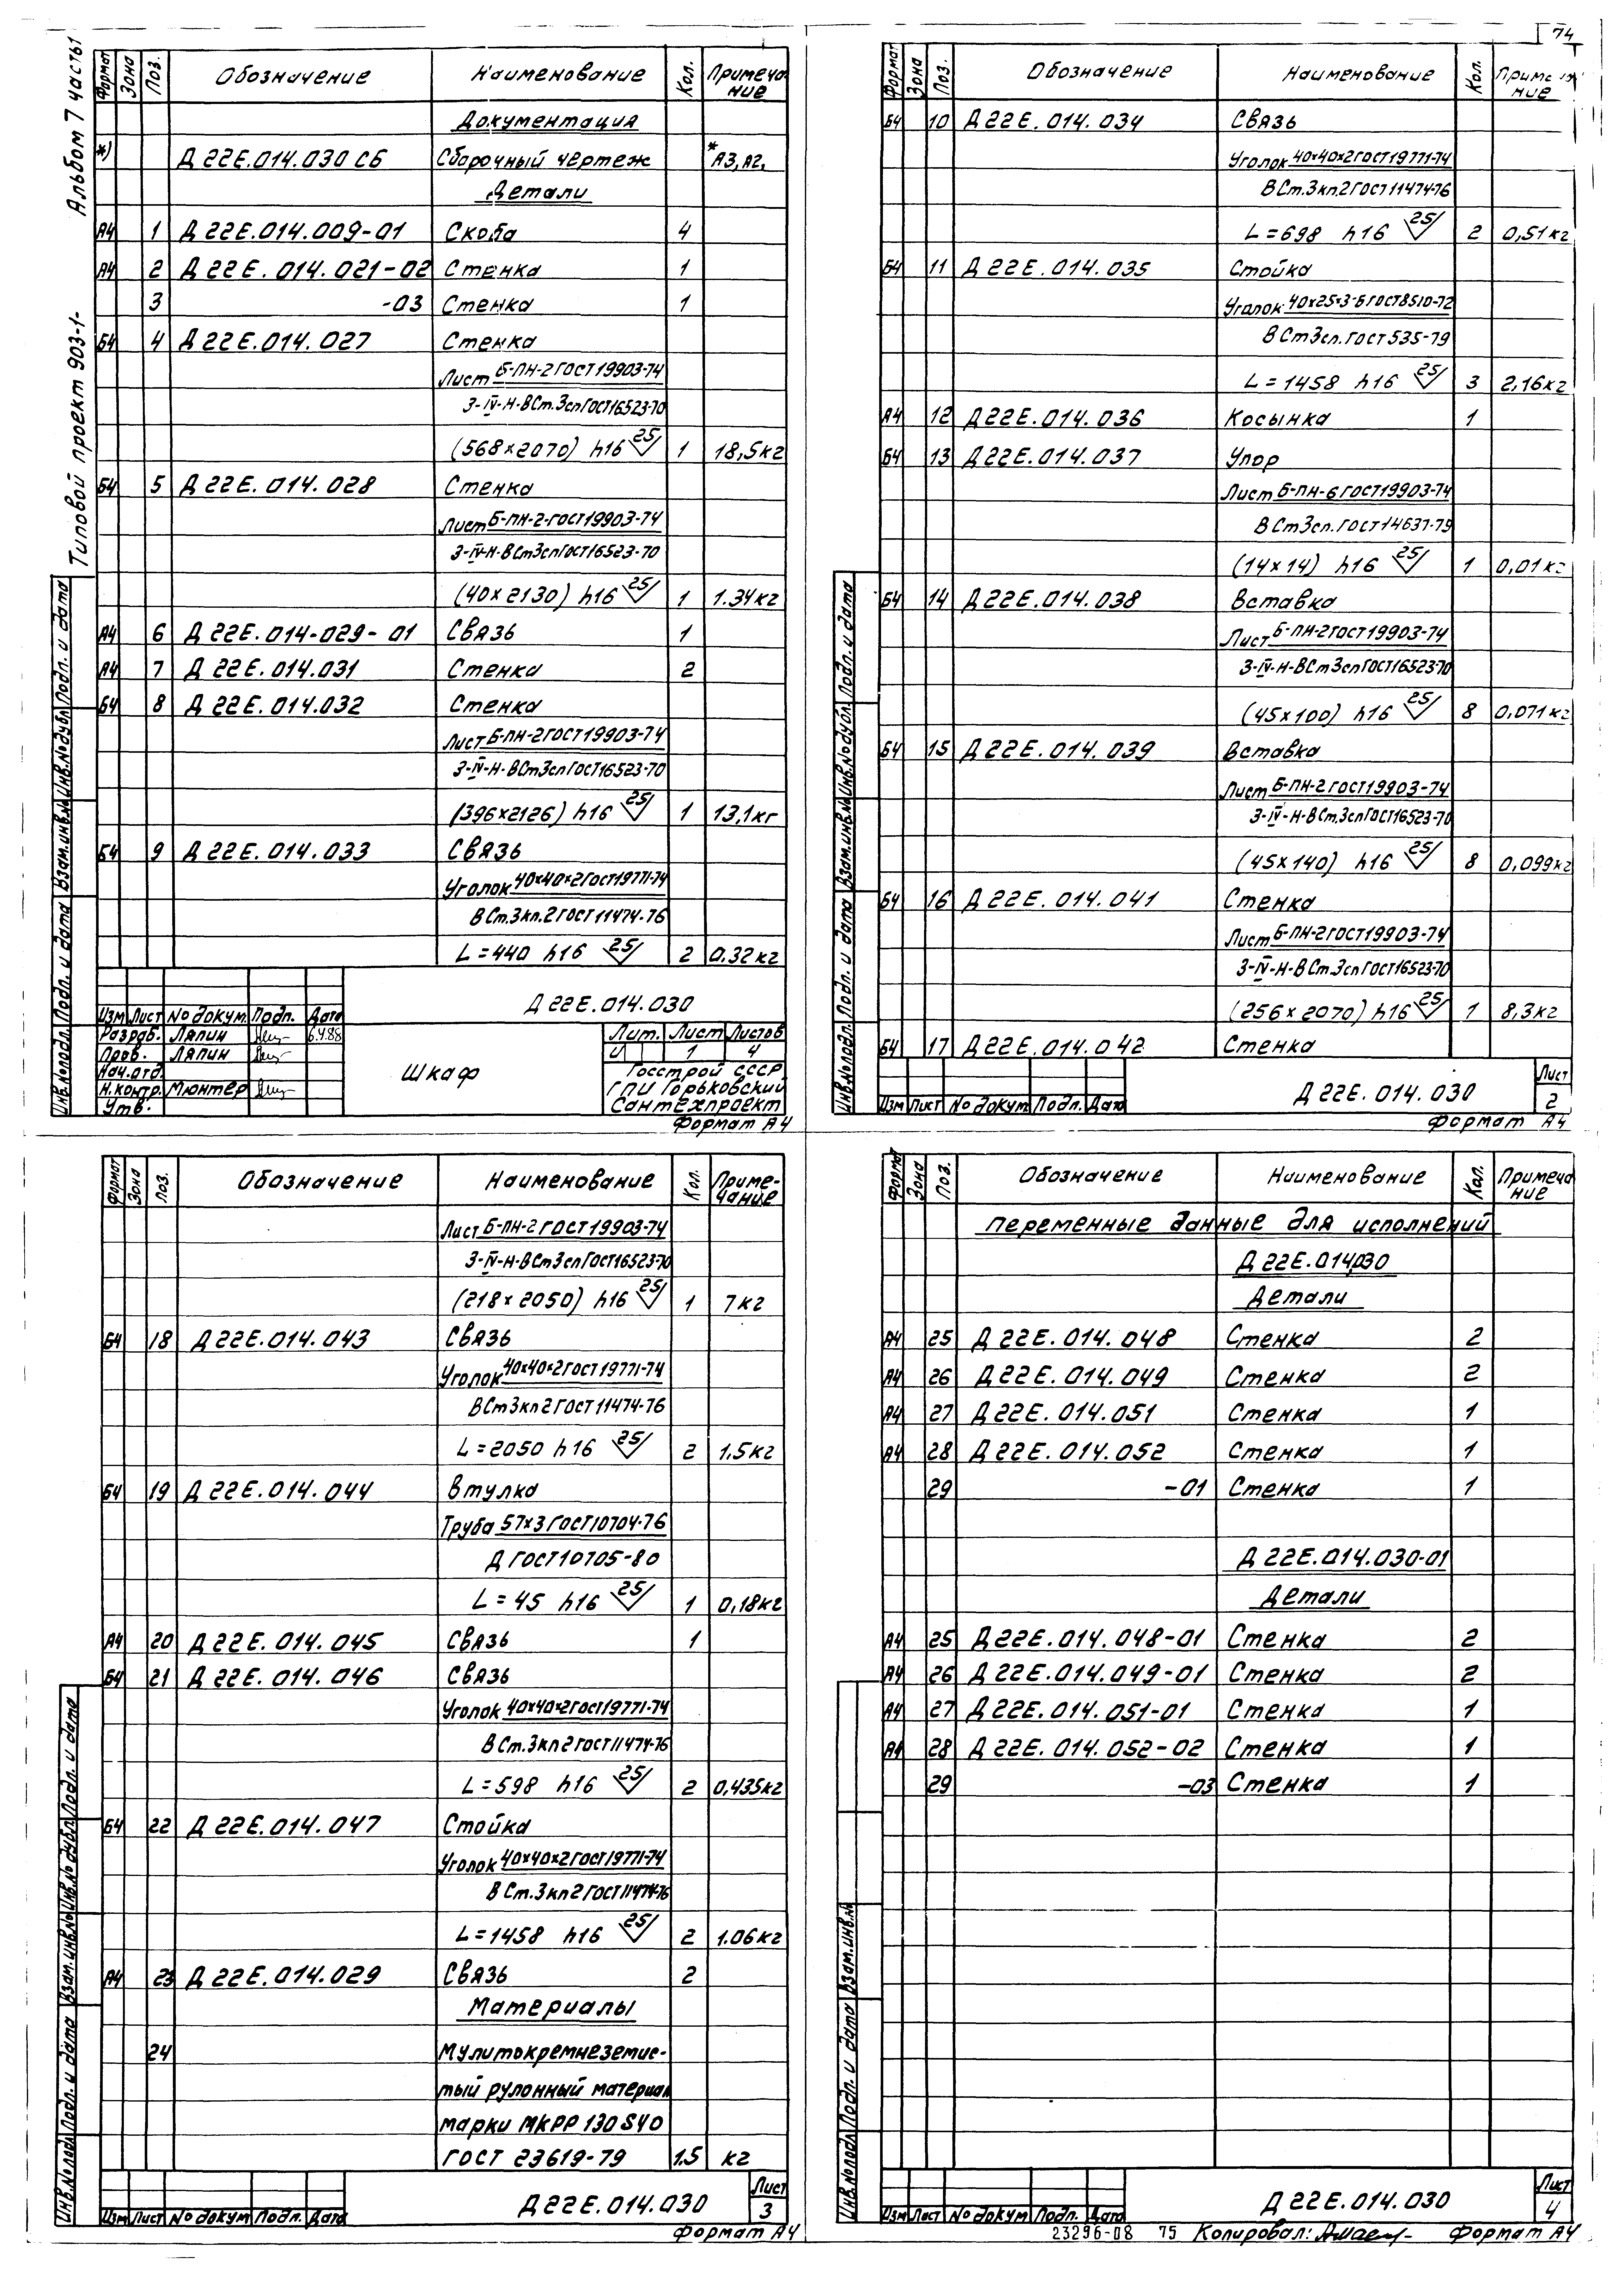 74
Альбом 7 часть 1
Типовой проект 903-1-
Формат Зона Поз. Обозначение Наименование Кол. Примечание
Документация
*) Д22Е.014.030 СБ Сборочный чертеж *А3, А2,
Детали
А4 1 Д22Е.014.009-01 Скоба 4
А4 2 Д22Е.014.021-02 Стенка 1
3 -03 Стенка 1
Б4 4 Д22Е.014.027 Стенка
Лист Б-ПН-2 ГОСТ 19903-74
3-IV-Н-ВСт.3сп ГОСТ 16523-70
(568×2070) h16 25 1 18,5кг
Б4 5 Д22Е.014.028 Стенка
Лист Б-ПН-2-ГОСТ 19903-74
3-IV-Н-ВСт3сп ГОСТ 16523-70
(40×2130) h16 25 1 1.34кг
А4 6 Д22Е.014-029-01 Связь 1
А4 7 Д22Е.014.031 Стенка 2
Б4 8 Д22Е.014.032 Стенка
Лист Б-ПН-2 ГОСТ 19903-74
3-IV-Н-ВСт3сп ГОСТ 16523-70
(396×2126) h16 25 1 13,1кг
Б4 9 Д22Е.014.033 Связь
Уголок 40×40×2 ГОСТ 19771-74
ВСт.3кп.2 ГОСТ 11474-76
L=440 h16 25 2 0.32кг
Д22Е.014.030
Изм Лист № докум. Подп. Дата
Разраб. Ляпин 6.4.88
Пров. Ляпин
Нач.отд.
Н.контр. Мюнтер
Утв.
Шкаф
Лит. Лист Листов
И 1 4
Госстрой СССР
ГПИ Горьковский
Сантехпроект
Формат А4
Инв.№подл. Подп. и дата Взам.инв.№ Инв.№дубл. Подп. и дата
Формат Зона Поз. Обозначение Наименование Кол. Примечание
Б4 10 Д22Е.014.034 Связь
Уголок 40×40×2 ГОСТ 19771-74
ВСт.3кп.2 ГОСТ 11474-76
L=698 h16 25 2 0,51кг
Б4 11 Д22Е.014.035 Стойка
Уголок 40×25×3-Б ГОСТ 8510-72
ВСт3сп. ГОСТ 535-79
L=1458 h16 25 3 2,16кг
А4 12 Д22Е.014.036 Косынка 1
Б4 13 Д22Е.014.037 Упор
Лист Б-ПН-6 ГОСТ 19903-74
ВСт3сп. ГОСТ 14637-79
(14×14) h16 25 1 0,01кг
Б4 14 Д22Е.014.038 Вставка
Лист Б-ПН-2 ГОСТ 19903-74
3-IV-Н-ВСт3сп ГОСТ 16523-70
(45×100) h16 25 8 0,071кг
Б4 15 Д22Е.014.039 Вставка
Лист Б-ПН-2 ГОСТ 19903-74
3-IV-Н-ВСт.3сп ГОСТ 16523-70
(45×140) h16 25 8 0,099кг
Б4 16 Д22Е.014.041 Стенка
Лист Б-ПН-2 ГОСТ 19903-74
3-IV-Н-ВСт.3сп ГОСТ 16523-70
(256×2070) h16 25 1 8,3кг
Б4 17 Д22Е.014.042 Стенка
Изм Лист № докум Подп. Дата
Д22Е.014.030
Лист 2
Формат А4
Инв.№подл. Подп. и дата Взам.инв.№ Инв.№дубл. Подп. и дата
Формат Зона Поз. Обозначение Наименование Кол. Примечание
Лист Б-ПН-2 ГОСТ 19903-74
3-IV-Н-ВСт3сп ГОСТ 16523-70
(218×2050) h16 25 1 7кг
Б4 18 Д22Е.014.043 Связь
Уголок 40×40×2 ГОСТ 19771-74
ВСт3кп2 ГОСТ 11474-76
L=2050 h16 25 2 1,5кг
Б4 19 Д22Е.014.044 Втулка
Труба 57×3 ГОСТ 10704-76
Д ГОСТ 10705-80
L=45 h16 25 1 0,18кг
А4 20 Д22Е.014.045 Связь 1
Б4 21 Д22Е.014.046 Связь
Уголок 40×40×2 ГОСТ 19771-74
ВСт.3кп2 ГОСТ 11474-76
L=598 h16 25 2 0,435кг
Б4 22 Д22Е.014.047 Стойка
Уголок 40×40×2 ГОСТ 19771-74
ВСт.3кп2 ГОСТ 11474-76
L=1458 h16 25 2 1.06кг
А4 23 Д22Е.014.029 Связь 2
Материалы
24 Мулитокремнеземис-
тый рулонный материал
марки МКРР 130 S40
ГОСТ 23619-79 1.5 кг
Изм Лист № докум Подп. Дата
Д22Е.014.030
Лист 3
Формат А4
Инв.№подл. Подп. и дата Взам.инв.№ Инв.№дубл. Подп. и дата
Формат Зона Поз. Обозначение Наименование Кол. Примечание
Переменные данные для исполнений
Д22Е.014.030
Детали
А4 25 Д22Е.014.048 Стенка 2
А4 26 Д22Е.014.049 Стенка 2
А4 27 Д22Е.014.051 Стенка 1
А4 28 Д22Е.014.052 Стенка 1
29 -01 Стенка 1
Д22Е.014.030-01
Детали
А4 25 Д22Е.014.048-01 Стенка 2
А4 26 Д22Е.014.049-01 Стенка 2
А4 27 Д22Е.014.051-01 Стенка 1
А4 28 Д22Е.014.052-02 Стенка 1
29 -03 Стенка 1
Изм Лист № докум Подп. Дата
Д22Е.014.030
Лист 4
Инв.№подл. Подп. и дата Взам.инв.№
23296-08 75 Копировал: Формат А4